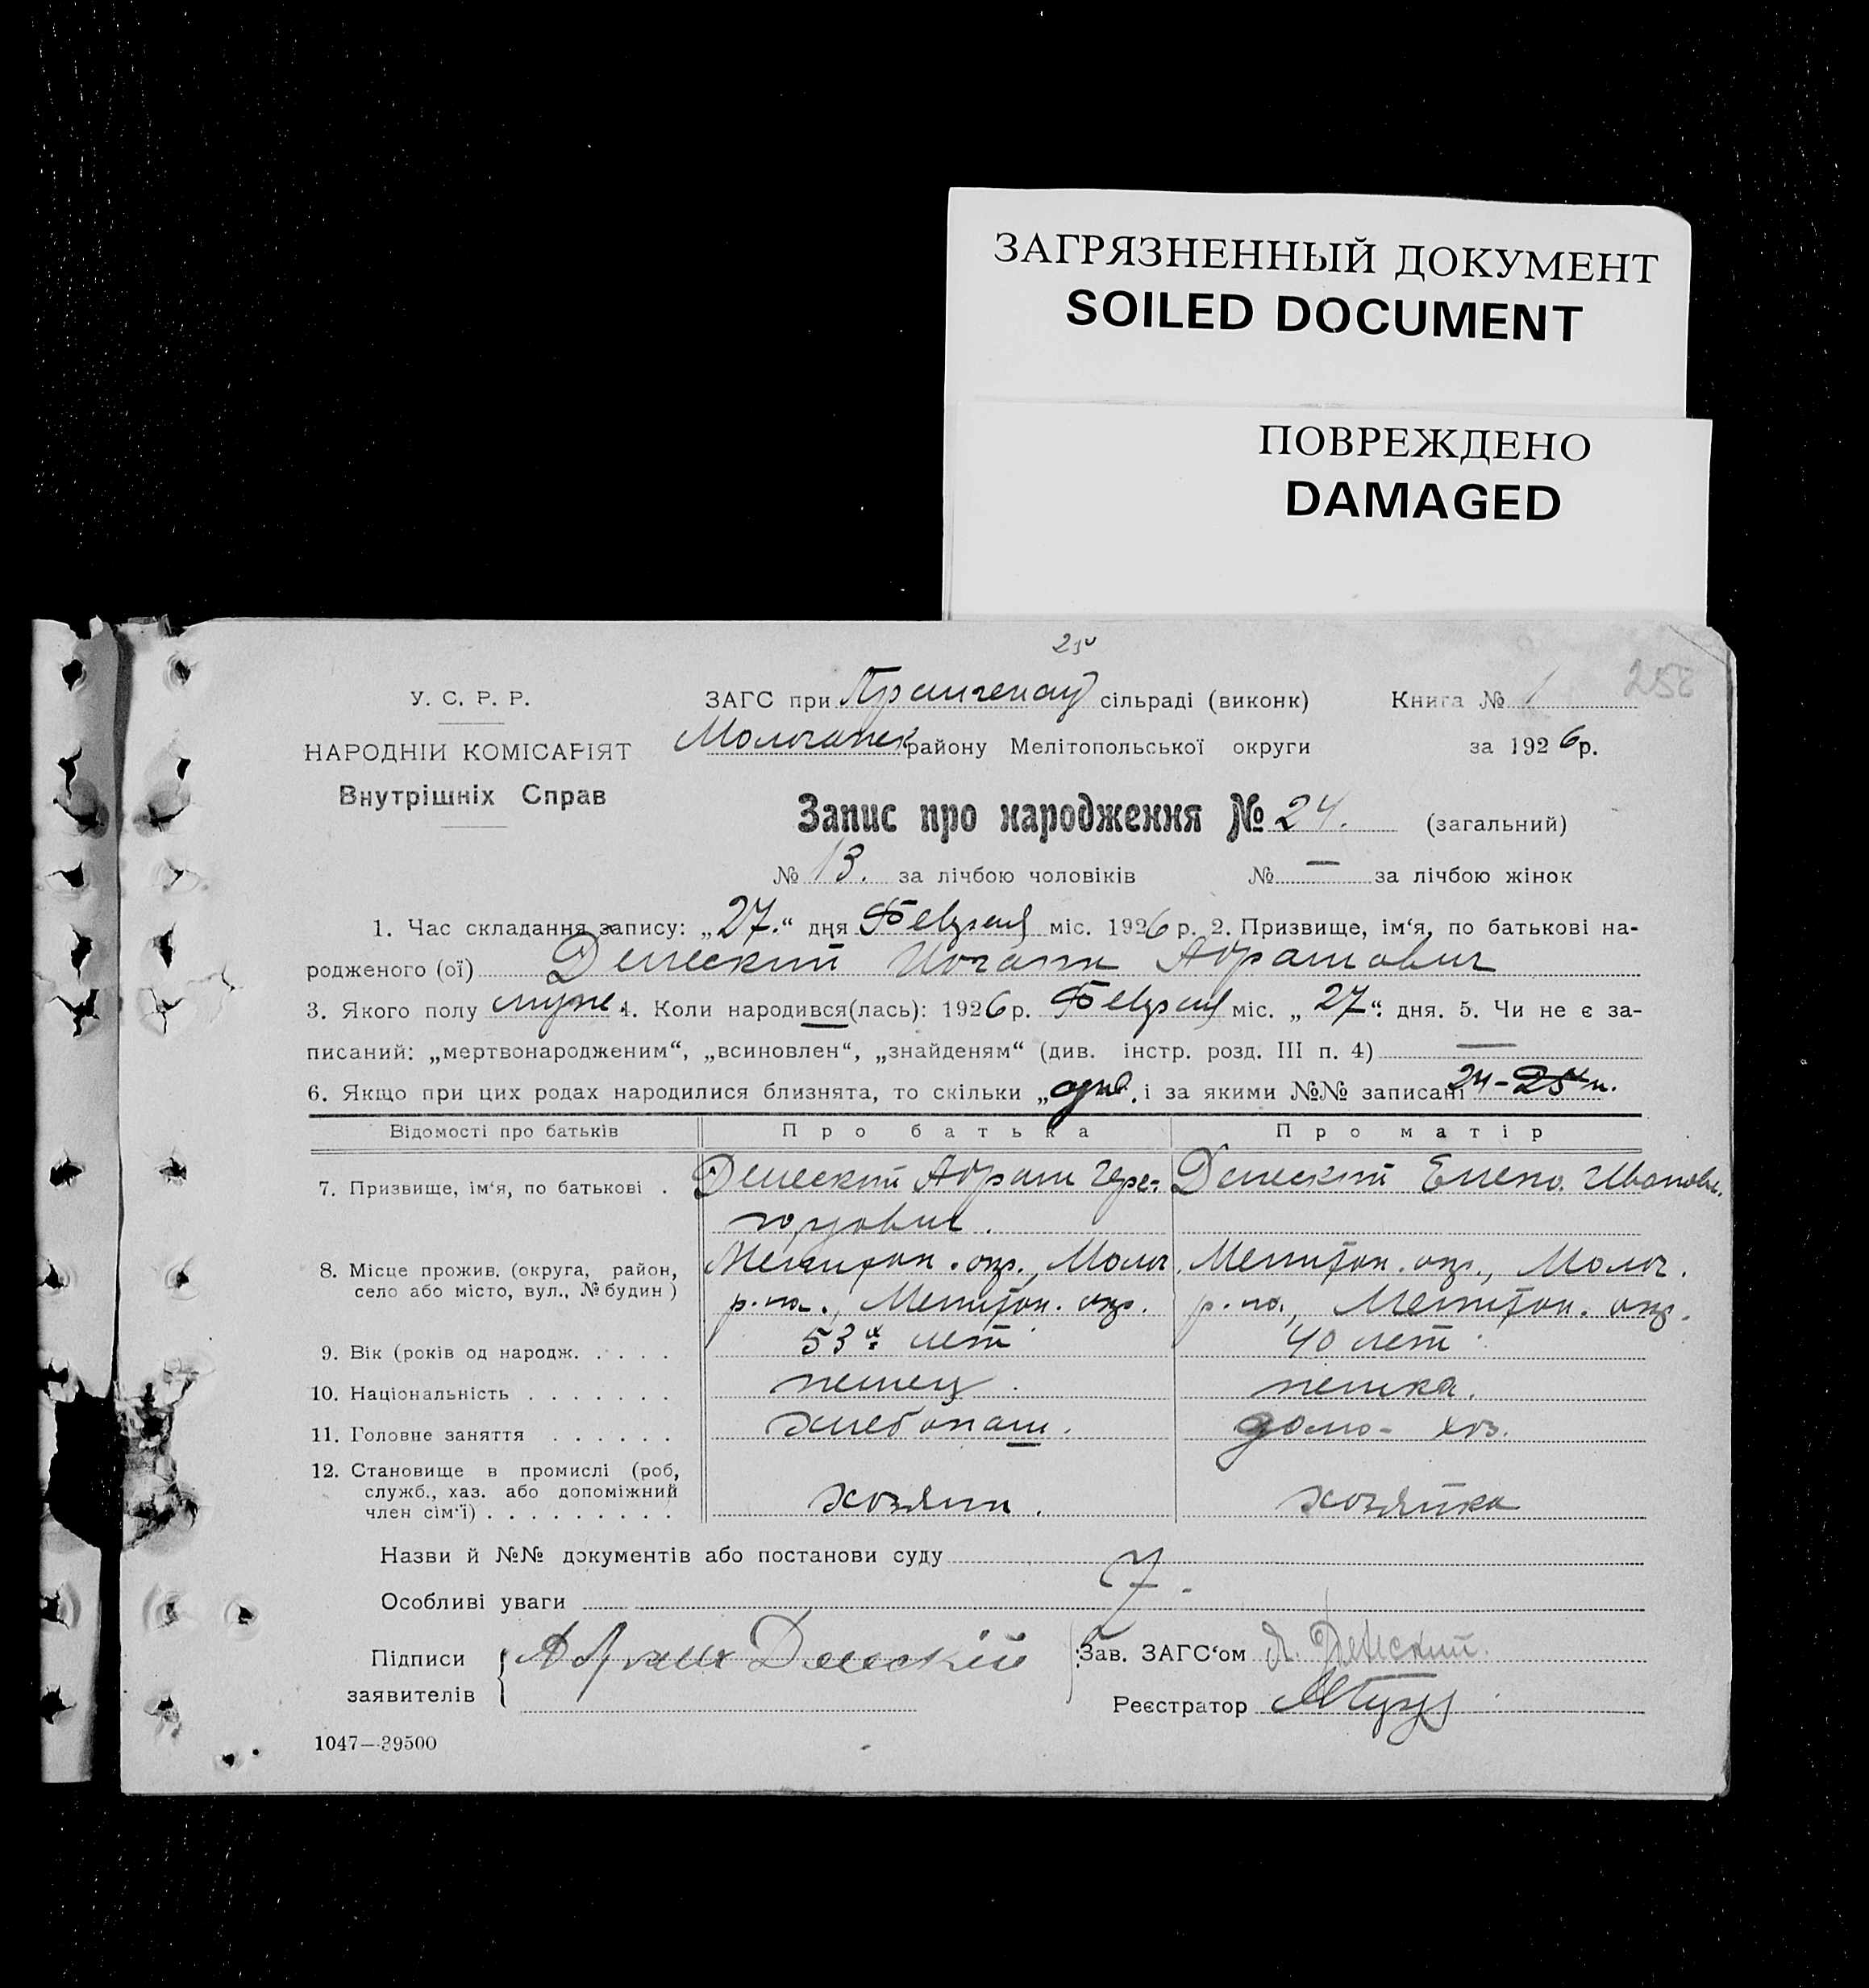 ЗАГРЯЗНЕННЫЙ ДОКУМЕНТ
SOILED DOCUMENT
ПОВРЕЖДЕНО
DAMAGED
У. С. Р. Р.
НАРОДНІЙ КОМІСАРІЯТ
Внутрішніх Справ
ЗАГС при сільраді (виконк) Книга № 1
Молочанск району Мелітопольської округи за 1926 р.
Запис про народження № 24. (загальний)
№ 13. за лічбою чоловіків № — за лічбою жінок
1. Час складання запису: „27.“ дня Февраля міс. 1926 р. 2. Призвище, ім‘я, по батькові на-
родженого (ої) Иоган Абрамович
3. Якого полу муж. 4. Коли народився(лась): 1926 р. Февраля міс. „27“ дня. 5. Чи не є за-
писаний: „мертвонародженим“, „всиновлен“, „знайденям“ (див. інстр. розд. III п. 4) —
6. Якщо при цих родах народилися близнята, то скільки „ і за якими №№ записані 24-25
Відомості про батьків Про батька Про матір
7. Призвище, ім‘я, по батькові . Абрам Елена Иванов.
8. Місце прожив. (округа, район, село або місто, вул., № будин ) Мелитоп. окр., Молоч. Мелитоп. окр., Молоч.
р-на., Мелитоп. окр. р-на., Мелитоп. окр.
9. Вік (років од народж. . . . . 53 лет 40 лет
10. Національність . . . . . . . немец. немка.
11. Головне заняття . . . . . . хлебопаш. домо-хоз.
12. Становище в промислі (роб,
служб., хаз. або допоміжний
член сім‘ї) . . . . . . . . . хозяин. хозяйка
Назви й №№ документів або постанови суду
Особливі уваги
Підписи
заявителів
Зав. ЗАГС‘ом
Реєстратор
1047—39500